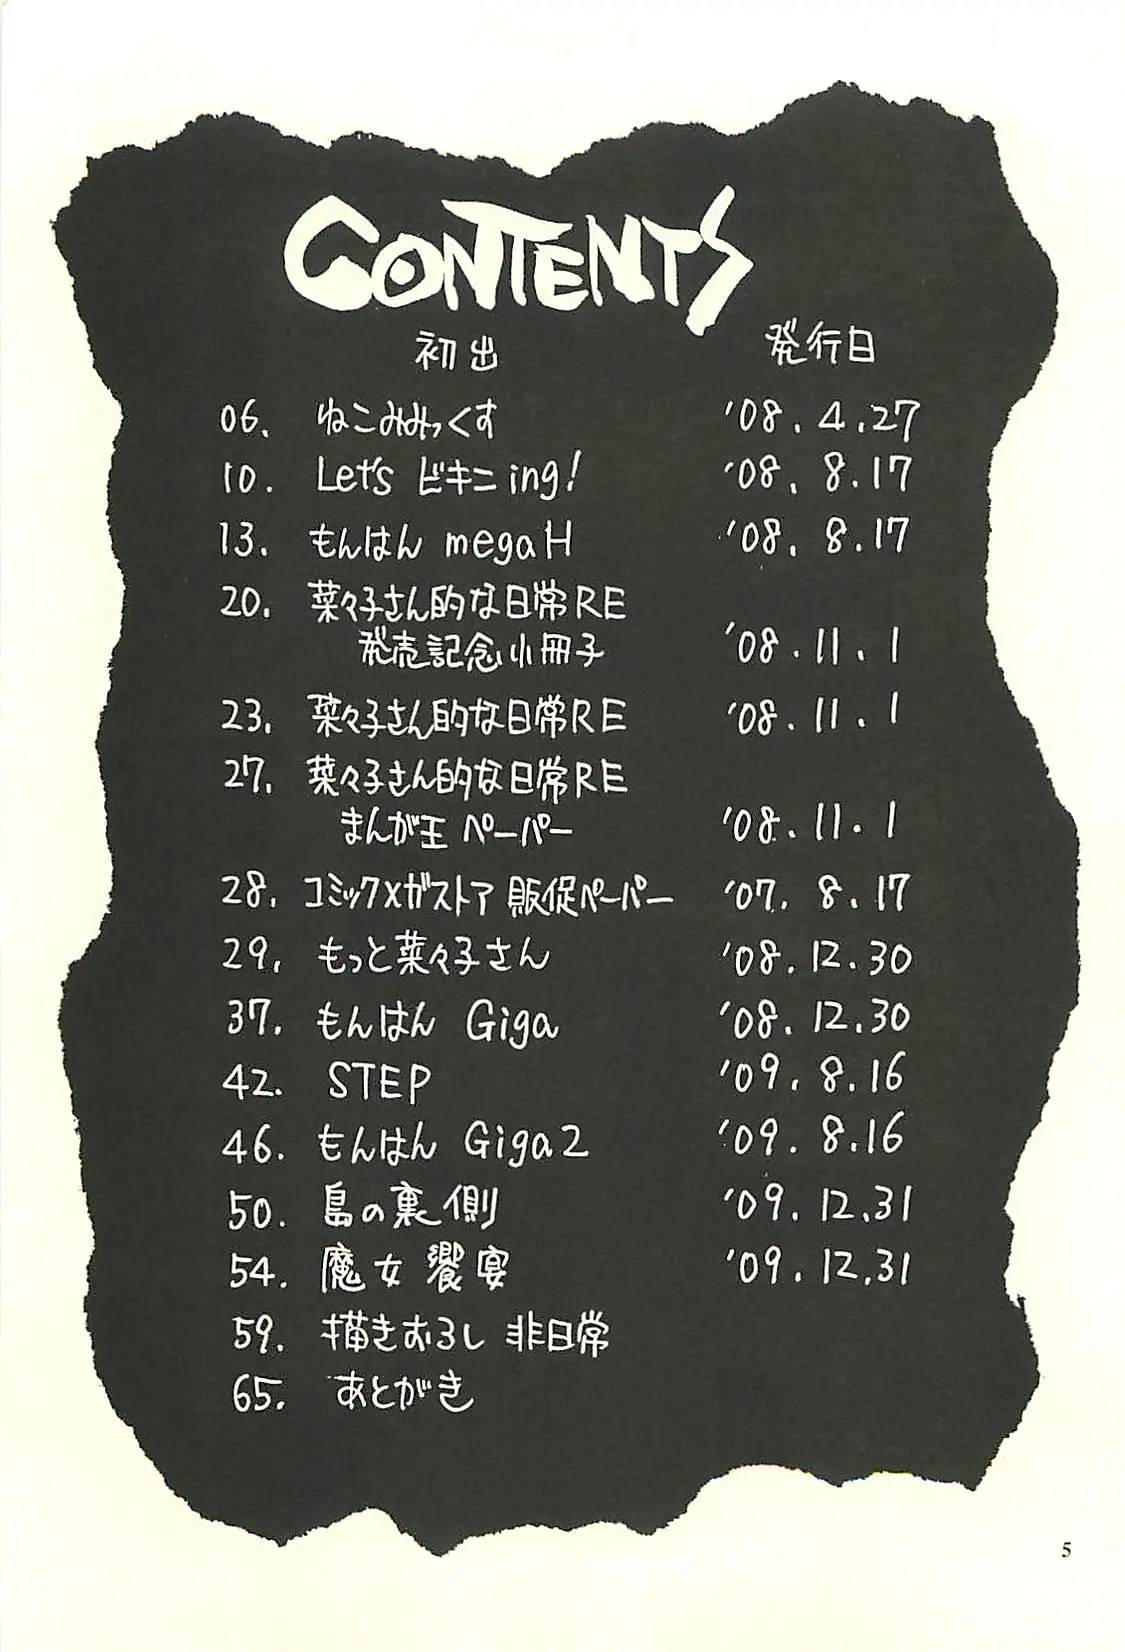 CONTENTS
初出 発行日
06. ねこみみっくす '08.4.27
10. Let's ビキニing! '08.8.17
13. もんはん megaH '08.8.17
20. 菜々子さん的な日常RE
発売記念小冊子 '08.11.1
23. 菜々子さん的な日常RE '08.11.1
27. 菜々子さん的な日常RE
まんが王 ペーパー '08.11.1
28. コミックメガストア 販促ペーパー '07.8.17
29. もっと菜々子さん '08.12.30
37. もんはん Giga '08.12.30
42. STEP '09.8.16
46. もんはん Giga2 '09.8.16
50. 島の裏側 '09.12.31
54. 魔女饗宴 '09.12.31
59. 描きおろし 非日常
65. あとがき
5